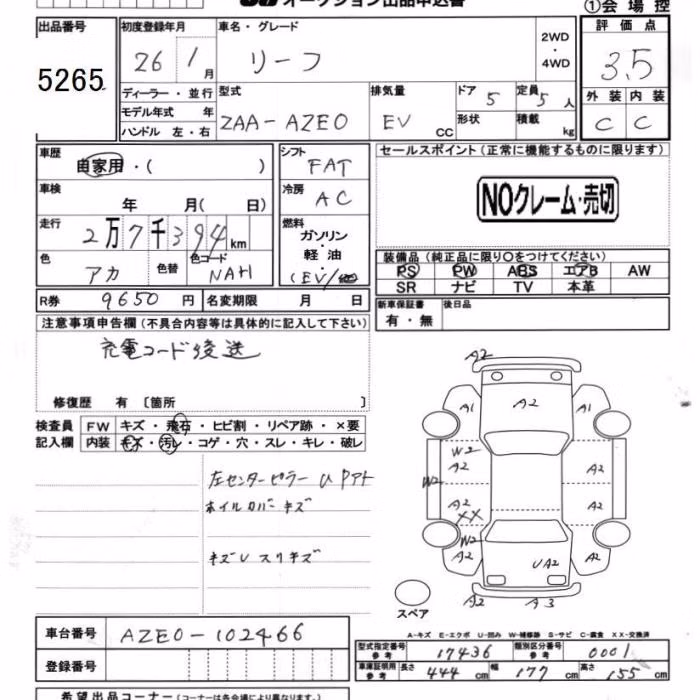 オークション出品申込書
①会場控
出品番号 初度登録年月 車名・グレード 2WD・4WD 評価点
5265 26 1月 リーフ 3.5
ディーラー・並行 型式 排気量 ドア 5 定員 5人 外装 内装
モデル年式 年 ZAA-AZEO EV CC 形状 積載 kg C C
ハンドル 左・右
車歴 自家用・( ) シフト FAT セールスポイント(正常に機能するものに限ります)
車検 年 月( 日) 冷房 AC NOクレーム・売切
走行 2万7千394km 燃料 ガソリン・軽油
(EV/
色 アカ 色替 色コード NAH
装備品(純正品に限り〇をつけてください)
PS PW ABS エアB AW
SR ナビ TV 本革
R券 9650円 名変期限 月 日
新車保証書 有・無 後日品
注意事項申告欄(不具合内容等は具体的に記入して下さい)
充電コード後送
修復歴 有〔箇所 〕
検査員記入欄 FW キズ・飛石・ヒビ割・リペア跡・×要
内装 キズ・汚レ・コゲ・穴・スレ・キレ・破レ
左センターピラー U Pアト
ホイルカバーキズ
キズU スリキズ
A2
A1 A2 A1
W2 A2 A2
W2
A2 XX A2
W2 A2 UA2 A2
A2 A3
スペア
A-キズ E-エクボ U-凹み W-補修跡 S-サビ C-腐食 XX-交換済
車台番号 AZEO-102466
型式指定番号 参考 17436 類別区分番号 参考 0001
登録番号
車庫証明用 参考 長さ 444cm 幅 177cm 高さ 155cm
希望出品コーナー(コーナーは各会場により異なります)